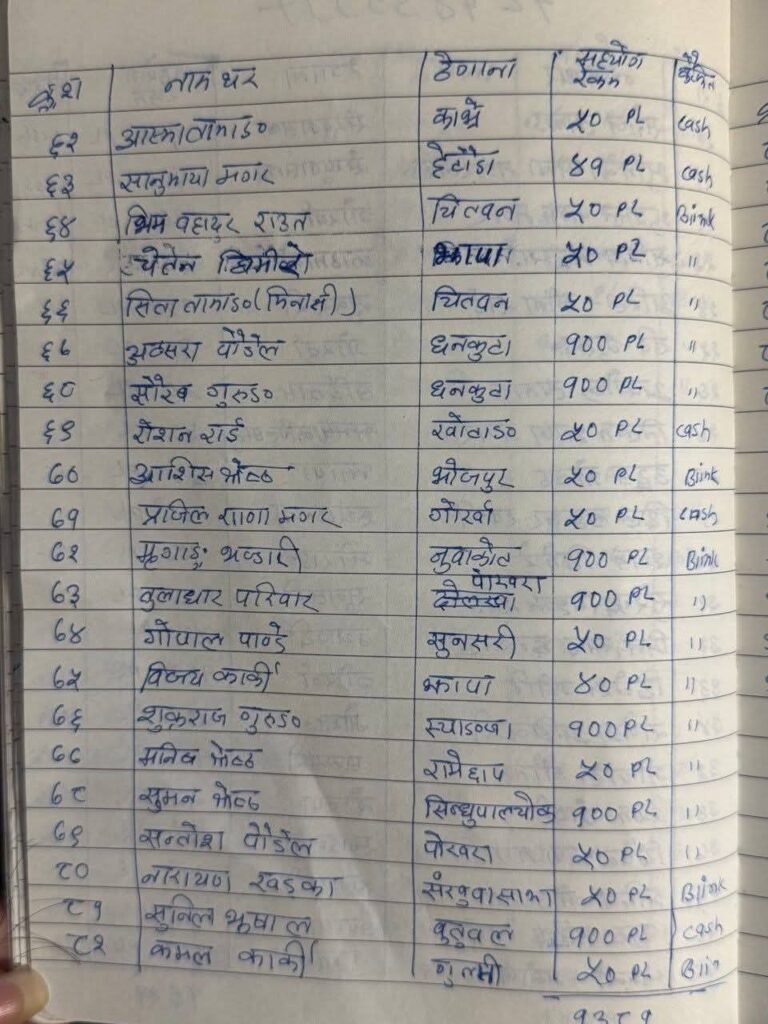 नाम थर ठेगाना सहयोग रकम
६२ आस्मा तामाङ काभ्रे ५० PL cash
६३ सानुमाया मगर हेटौडा ४१ PL cash
६४ भिम वहादुर राउत चितवन ५० PL Blink
६५ चेतेन झापा ५० PL "
६६ सिता तामाङ (मिनाक्षी) चितवन ५० PL "
६७ पौडेल धनकुटा १०० PL "
६८ सौरव गुरुङ धनकुटा १०० PL "
६९ रोशन राई खोटाङ ५० PL cash
७० आशिस श्रेष्ठ भोजपुर ५० PL Blink
७१ प्रजिल राना मगर गोर्खा ५० PL cash
७२ भण्डारी नुवाकोट १०० PL Blink
पोखरा
७३ वुलाधार परिवार दोलखा १०० PL "
७४ गोपाल पाण्डे सुनसरी ५० PL "
७५ विजय कार्की झापा ४० PL "
७६ शुकराज गुरुङ स्याङजा १०० PL "
७७ मनिष श्रेष्ठ रामेछाप ५० PL "
७८ सुमन श्रेष्ठ सिन्धुपाल्चोक १०० PL "
७९ सन्तोश पौडेल पोखरा ५० PL "
८० नारायण खड्का संखुवासभा ५० PL Blink
८१ सुनिल भुषाल वुटुवल १०० PL cash
८२ कमल कार्की गुल्मी ५० PL Blin
१३८१